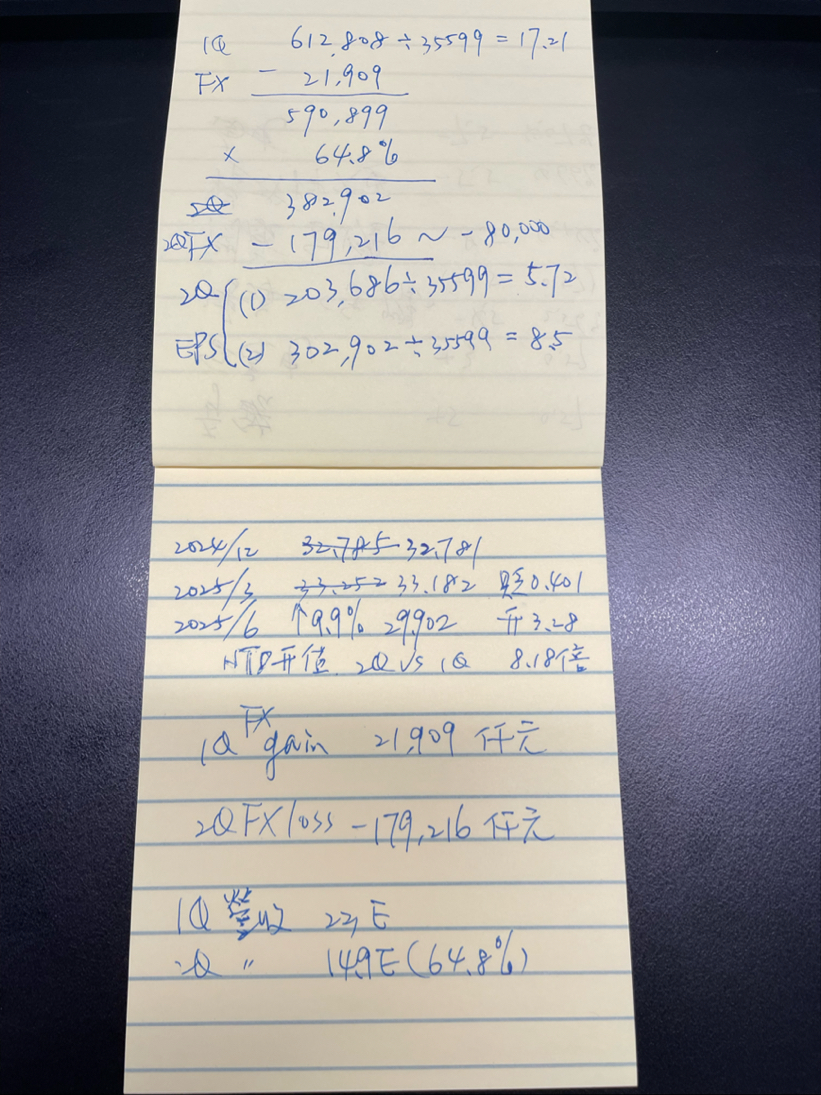 1Q 612,808÷35599=17.21
FX - 21,909
590,899
x 64.8%
2Q 382,902
2QFX -179,216 ~ -80,000
2Q (1) 203,686÷35599=5.72
EPS (2) 302,902÷35599=8.5
2024/12 32.785 32.781
2025/3 33.252 33.182 貶0.401
2025/6 ↑9.9% 29.902 升3.28
NTD升值 2Q vs 1Q 8.18倍
1Q FX gain 21,909 仟元
2Q FX loss -179,216 仟元
1Q 營收 23E
2Q " 14.9E (64.8%)